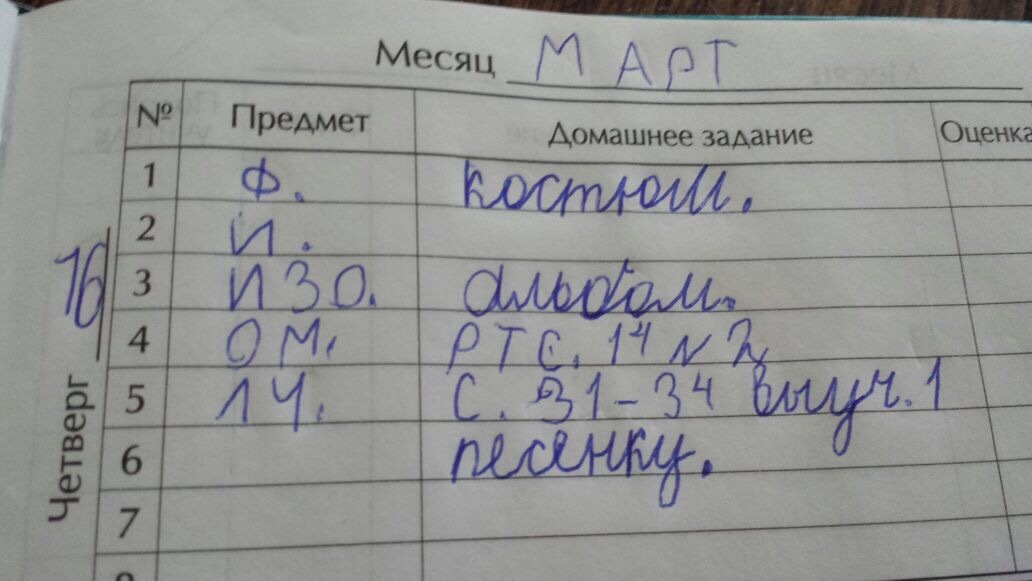 Месяц МАРТ
№ Предмет Домашнее задание Оценка
Четверг 16
1 Ф. костюм.
2 И.
3 ИЗО. альбом.
4 ОМ. РТ С. 14 N 2
5 ЛЧ. С. 31-34 выуч. 1
6 песенку.
7